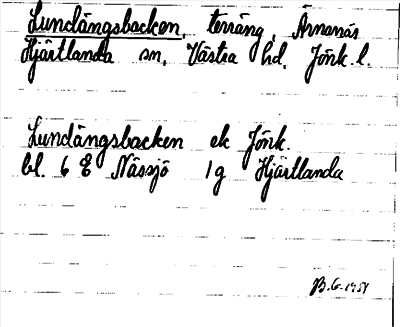 Lundängsbacken, terräng, Årnanäs
Hjärtlanda sn, Västra hd, Jönk. l.
Lundängsbacken ek Jönk.
bl. 6 E Nässjö 1g Hjärtlanda
B.G. 1958